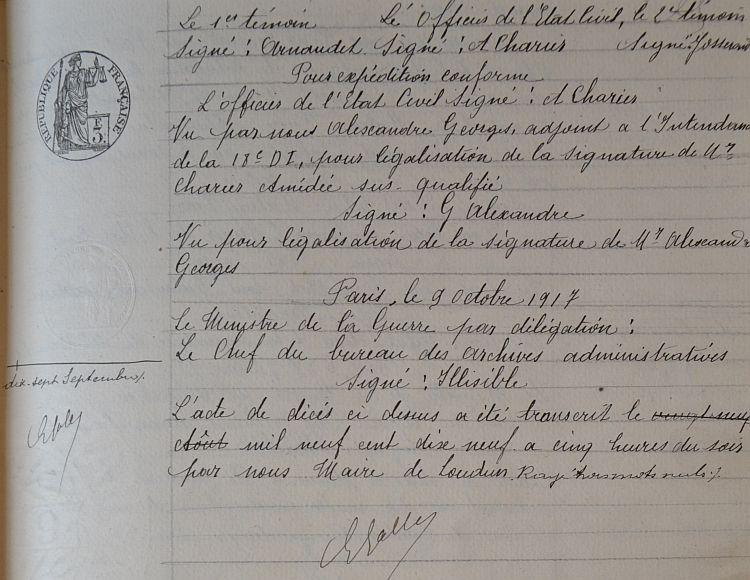 Le 1er témoin Le Officier de l'Etat Civil, le 2e témoin
Signé : Arnaudet Signé : A Charier Signé : Josserand
Pour expédition conforme
L'officier de l'Etat Civil Signé : A Charier
RÉPUBLIQUE FRANÇAISE
Vu par nous Alexandre Georges, adjoint a l'Intendance
de la 18e DI, pour légalisation de la signature de Mr
Charier Amédée sus-qualifié
Signé : G Alexandre
Vu pour légalisation de la signature de Mr Alexandre
Georges
Paris, le 9 Octobre 1917
Le Ministre de la Guerre par délégation :
Le Chef du bureau des archives administratives
Signé : Illisible
dix-sept Septembre
L'acte de décès ci dessus a été transcrit le vingt neuf
Août mil neuf cent dix neuf a cinq heures du soir
par nous Maire de Loudun. Rayé trois mots nuls